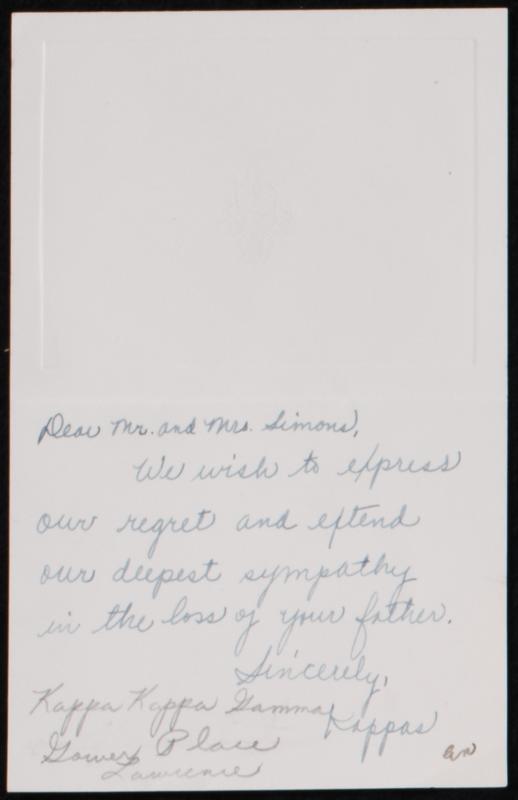 Dear Mr. and Mrs. Simons,
We wish to express
our regret and extend
our deepest sympathy
in the loss of your father.
Sincerely,
Kappas
Kappa Kappa Gamma
Gower Place
Lawrence